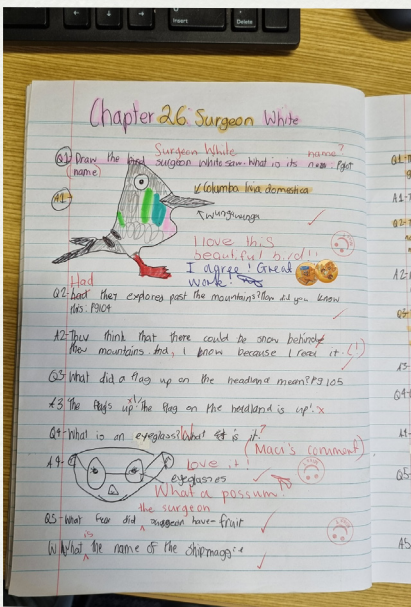 Insert
Delete
Chapter 26 Surgeon White
Surgeon White name?
Q1 Draw the bird surgeon white saw. What is its
name)
A1
Columba livia domestica
wungawunga
I love this
beautiful bird!!
I agree! Great
work.
Had
Q2- had they explored past the mountains? How did you know
this. Pg104
A2- They think that there could be snow behind
the mountains. And, I know because I read it. (!)
Q3- What did a flag up on the headland mean? Pg 105
A3 The flags up. The flag on the headland is up'. x
Q4- What is an eyeglass? What is it?
(Macr's comment)
A4-
Love it!
eyeglasses
What a possum!
the surgeon
Q5- What fear did surgeon have- fruit
is
What the name of the ship
A1
A2
A3
Q4
A4
Q5
A5